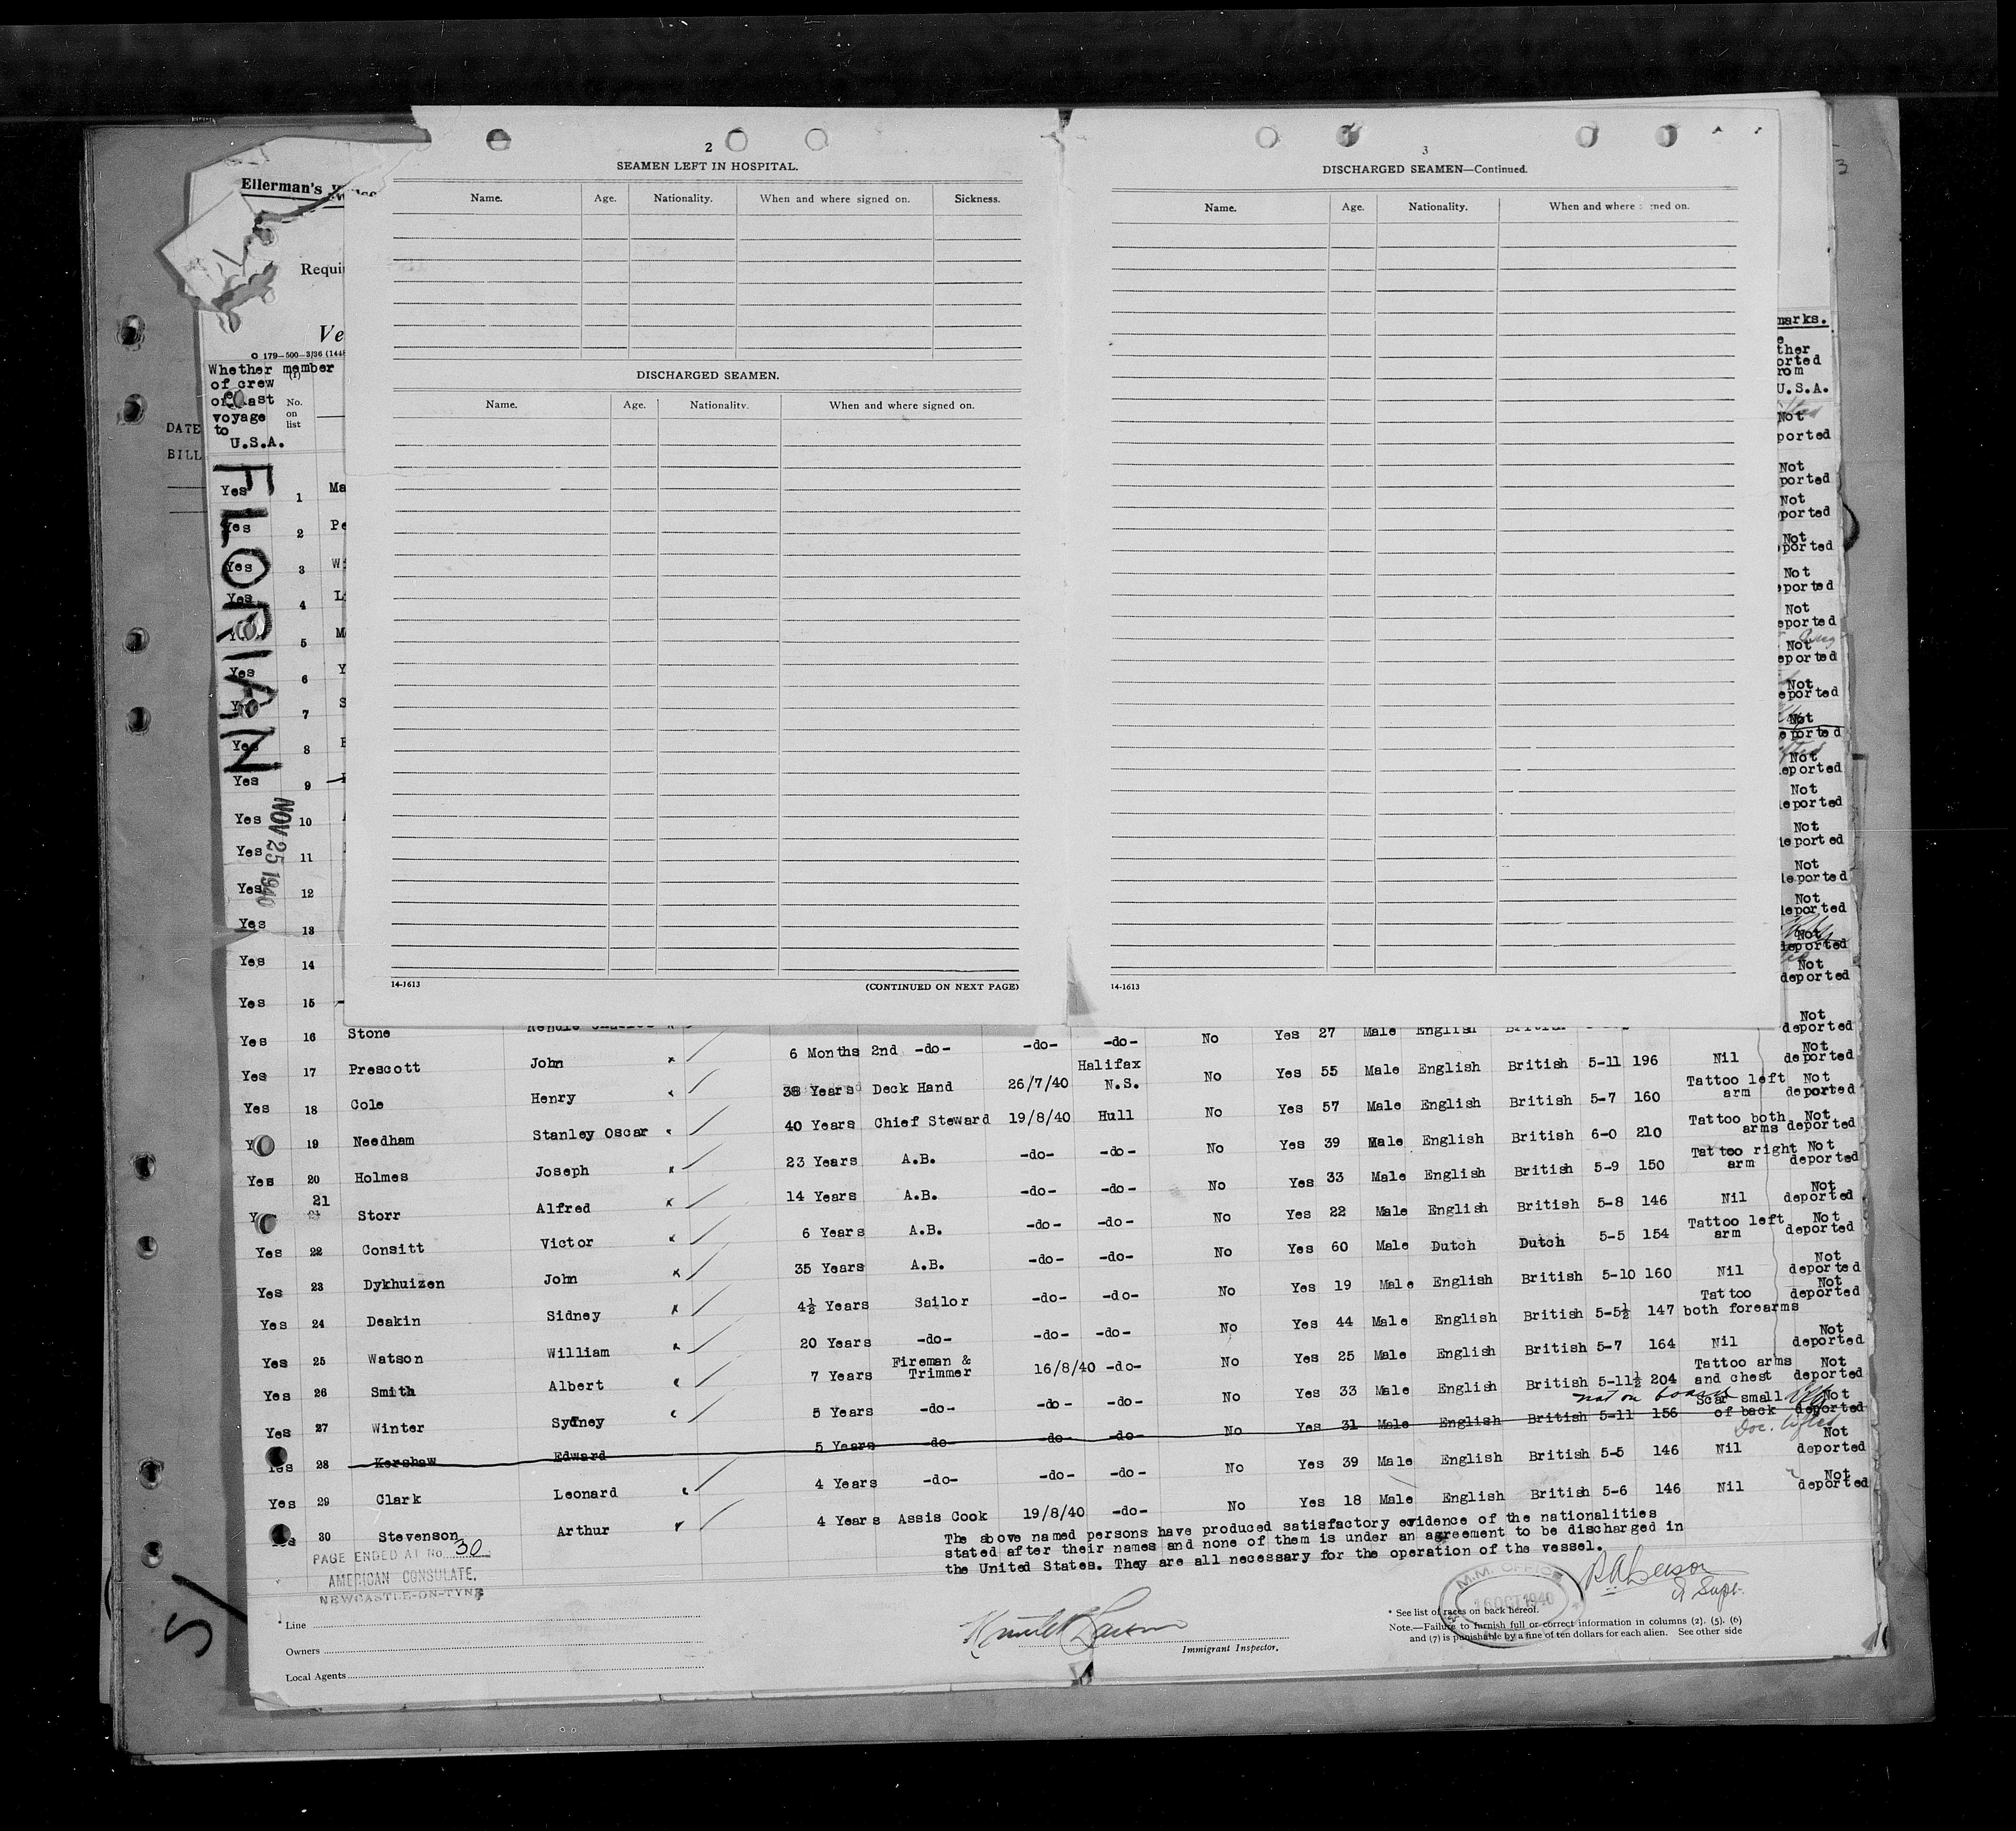 2
SEAMEN LEFT IN HOSPITAL.
Name. Age. Nationality. When and where signed on. Sickness.
DISCHARGED SEAMEN.
Name. Age. Nationality. When and where signed on.
14-1613 (CONTINUED ON NEXT PAGE)
3
DISCHARGED SEAMEN—Continued.
Name. Age. Nationality. When and where signed on.
14-1613
Ellerman's
Requi
Ve
O 179—500—3/36 (144
Whether member
of crew
on last
voyage
to
U.S.A.
(1)
No.
on
list
DATE
BILL
FLORIAN
NOV 25 1940
marks.
ther
orted
rom
U.S.A.
Yes 1 Ma Not ported
Yes 2 Pe Not ported
Yes 3 Wi Not ported
Yes 4 L Not ported
5 M Not eported
Yes 6 Y Not eported
7 S Not eported
Yes 8 Not eported
Yes 9 Not eported
Yes 10 Not deported
Yes 11 Not deported
Yes 12 Not deported
Yes 13 Not deported
Yes 14 Not deported
Yes 15 Not deported
Yes 16 Stone No Yes 27 Male English Not deported
Yes 17 Prescott John 6 Months 2nd -do- -do- -do- No Yes 55 Male English British 5-11 196 Nil Not deported
Yes 18 Cole Henry 38 Years Deck Hand 26/7/40 Halifax N.S. No Yes 57 Male English British 5-7 160 Tattoo left arm Not deported
19 Needham Stanley Oscar 40 Years Chief Steward 19/8/40 Hull No Yes 39 Male English British 6-0 210 Tattoo both arms Not deported
Yes 20 Holmes Joseph 23 Years A.B. -do- -do- No Yes 33 Male English British 5-9 150 Tattoo right arm Not deported
21 Storr Alfred 14 Years A.B. -do- -do- No Yes 22 Male English British 5-8 146 Nil Not deported
Yes 22 Consitt Victor 6 Years A.B. -do- -do- No Yes 60 Male Dutch Dutch 5-5 154 Tattoo left arm Not deported
Yes 23 Dykhuizen John 35 Years A.B. -do- -do- No Yes 19 Male English British 5-10 160 Nil Not deported
Yes 24 Deakin Sidney 4½ Years Sailor -do- -do- No Yes 44 Male English British 5-5½ 147 Tattoo both forearms Not deported
Yes 25 Watson William 20 Years -do- -do- -do- No Yes 25 Male English British 5-7 164 Nil Not deported
Yes 26 Smith Albert 7 Years Fireman & Trimmer 16/8/40 -do- No Yes 33 Male English British 5-11½ 204 Tattoo arms and chest Not deported
not on board
Yes 27 Winter Sydney 5 Years -do- -do- -do- No Yes 31 Male English British 5-11 156 Scar small of back Not deported
Doc. lifted
Yes 28 Kershaw Edward 5 Years -do- -do- -do- No Yes 39 Male English British 5-5 146 Nil Not deported
Yes 29 Clark Leonard 4 Years -do- -do- -do- No Yes 18 Male English British 5-6 146 Nil Not deported
30 Stevenson Arthur 4 Years Assis Cook 19/8/40 -do-
The above named persons have produced satisfactory evidence of the nationalities
stated after their names and none of them is under an agreement to be discharged in
the United States. They are all necessary for the operation of the vessel.
PAGE ENDED AT No. 30
AMERICAN CONSULATE,
NEWCASTLE-ON-TYNE
M.M. OFFICE
16 OCT 1940
Supt.
* Line
Owners
Local Agents
Immigrant Inspector.
* See list of races on back hereof.
Note.—Failure to furnish full or correct information in columns (2), (5), (6)
and (7) is punishable by a fine of ten dollars for each alien. See other side